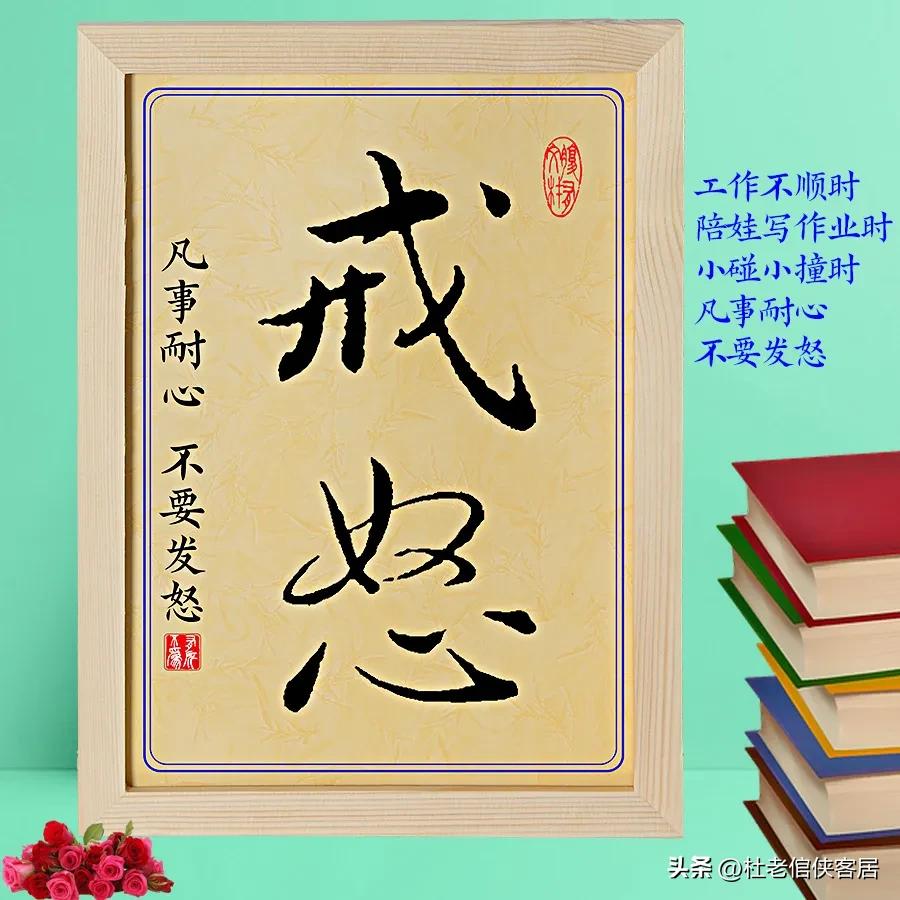 戒怒
凡事耐心 不要发怒
工作不顺时
陪娃写作业时
小碰小撞时
凡事耐心
不要发怒
头条 @杜老倌侠客居